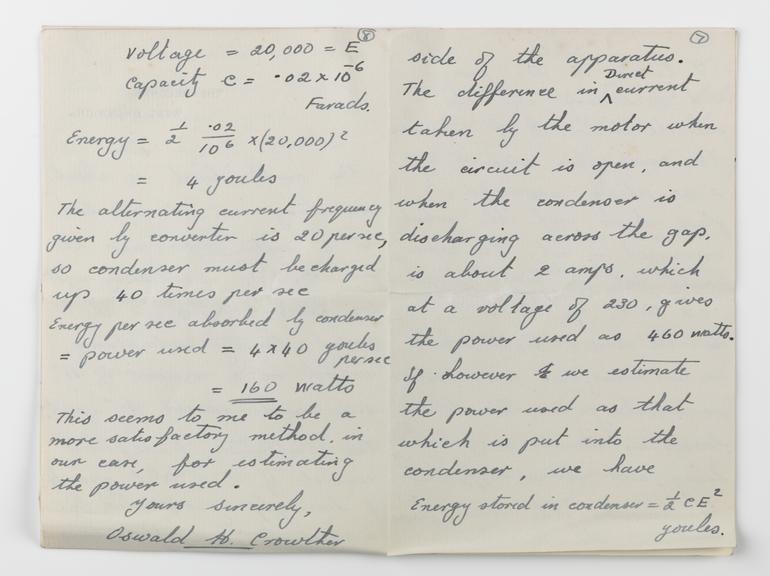 7
side of the apparatus.
The difference in Direct current
taken by the motor when
the circuit is open, and
when the condenser is
discharging across the gap,
is about 2 amps, which
at a voltage of 230, gives
the power used as 460 watts.
If however we estimate
the power used as that
which is put into the
condenser, we have
Energy stored in condenser = ½ CE²
youles.
8
Voltage = 20,000 = E
Capacity C = ·02 × 10⁻⁶
Farads.
Energy = ½ ·02/10⁶ × (20,000)²
= 4 youles
The alternating current frequency
given by converter is 20 per sec,
so condenser must be charged
up 40 times per sec
Energy per sec absorbed by condenser
= power used = 4 × 40 youles
per sec
= 160 watts
This seems to me to be a
more satisfactory method, in
our case, for estimating
the power used.
Yours sincerely,
Oswald H. Crowther